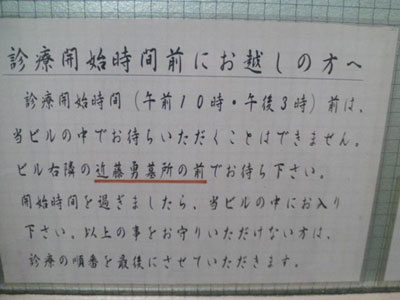 診療開始時間前にお越しの方へ
診療開始時間（午前10時・午後3時）前は、
当ビルの中でお待ちいただくことはできません。
ビル右隣の近藤勇墓所の前でお待ち下さい。
開始時間を過ぎましたら、当ビルの中にお入り
下さい。以上の事をお守りいただけない方は、
診療の順番を最後にさせていただきます。